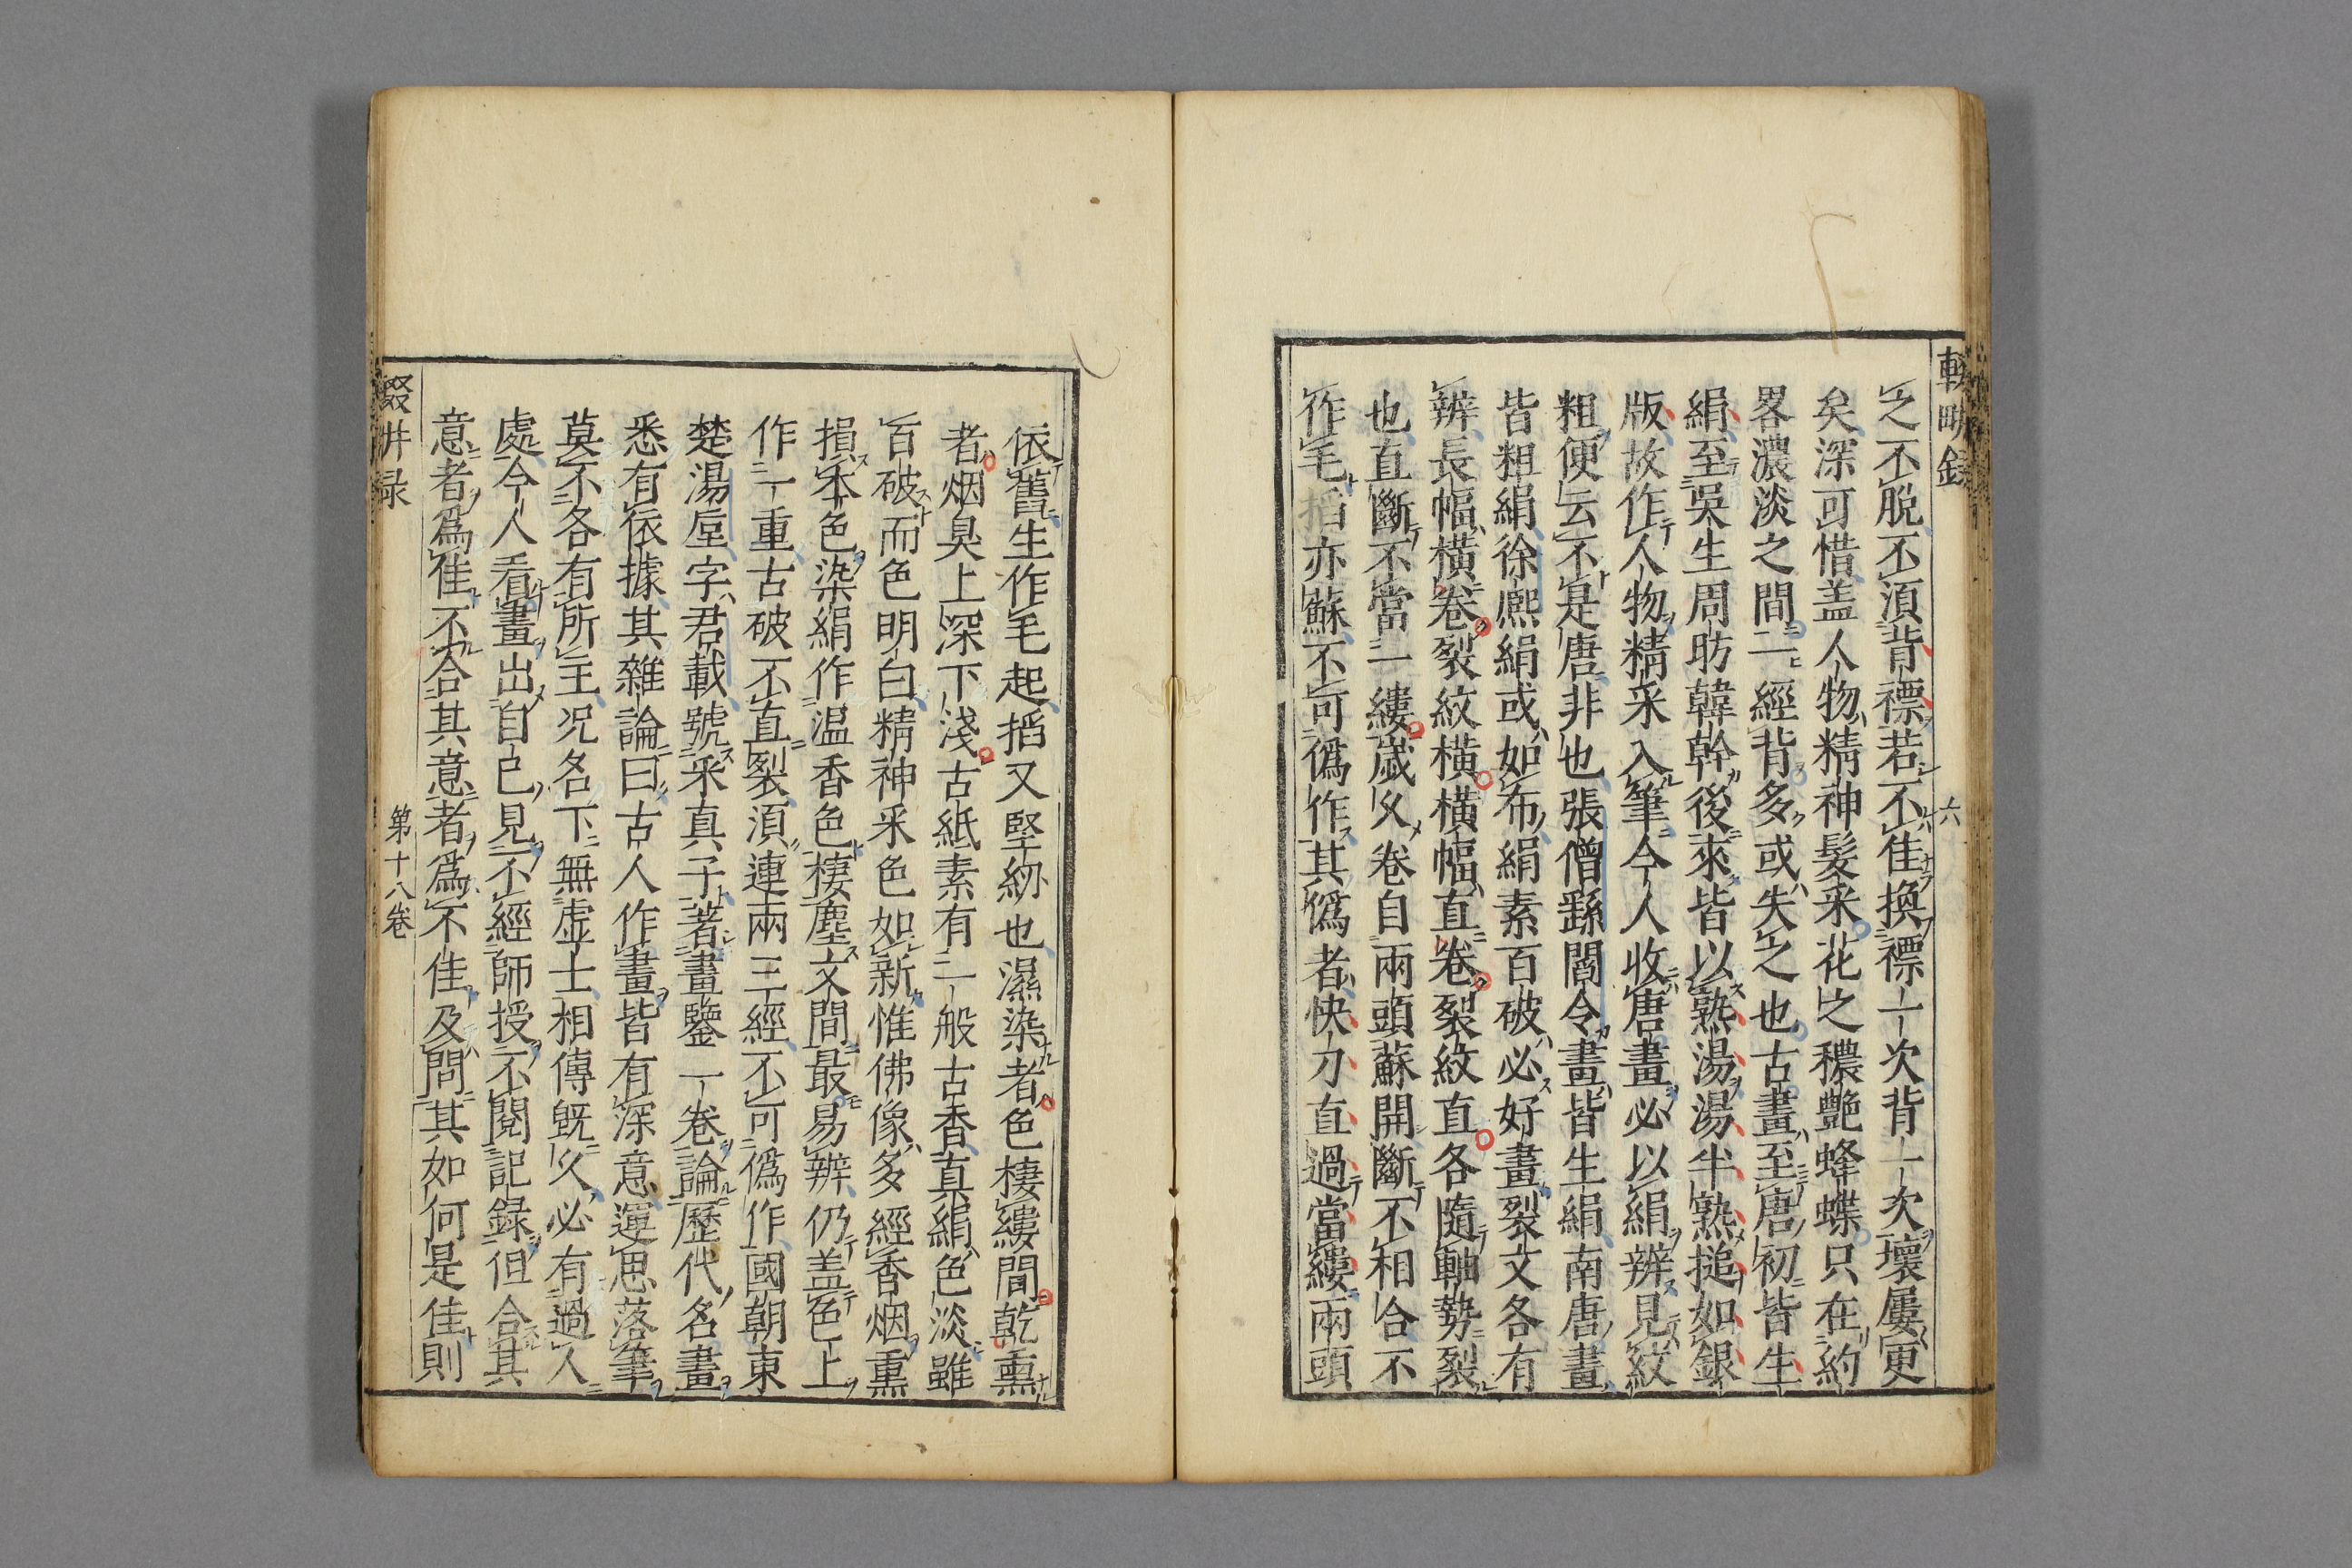 輟畊録
六
之不脱不湏背褾若不佳換褾一次背一次壞屢更
矣深可惜盖人物精神髮采花之穠艶蜂蝶只在約
畧濃淡之間二經背多或失之也古畫至唐初皆生
絹至吳生周昉韓幹後來皆以熟湯湯半熟搥如銀
版故作人物精采入筆今人收唐畫必以絹辨見紋
粗便云不是唐非也張僧繇閻令畫皆生絹南唐畫
皆粗絹徐熈絹或如布絹素百破必好畫裂文各有
辨長幅橫卷裂紋橫橫幅直卷裂紋直各隨軸勢裂
也直斷不當一縷歲久卷自兩頭蘇開斷不相合不
作毛掐亦蘇不可僞作其僞者快刀直過當縷兩頭
依舊生作毛起掐又堅紉也濕染者色棲縷間乾熏
者烟臭上深下淺古紙素有一般古香真絹色淡雖
百破而色明白精神釆色如新惟佛像多經香烟熏
損本色染絹作温香色棲塵文間最易辨仍盖色上
作一重古破不直裂湏連兩三經不可僞作國朝東
楚湯垕字君載號采真子著畫鑒一卷論歷代名畫
悉有依據其雜論曰古人作畫皆有深意運思落筆
莫不各有所主况名下無虚士相傳既久必有過人
處今人看畫出自已見不經師授不閲記録但合其
意者爲佳不合其意者爲不佳及問其如何是佳則
輟畊录
第十八卷